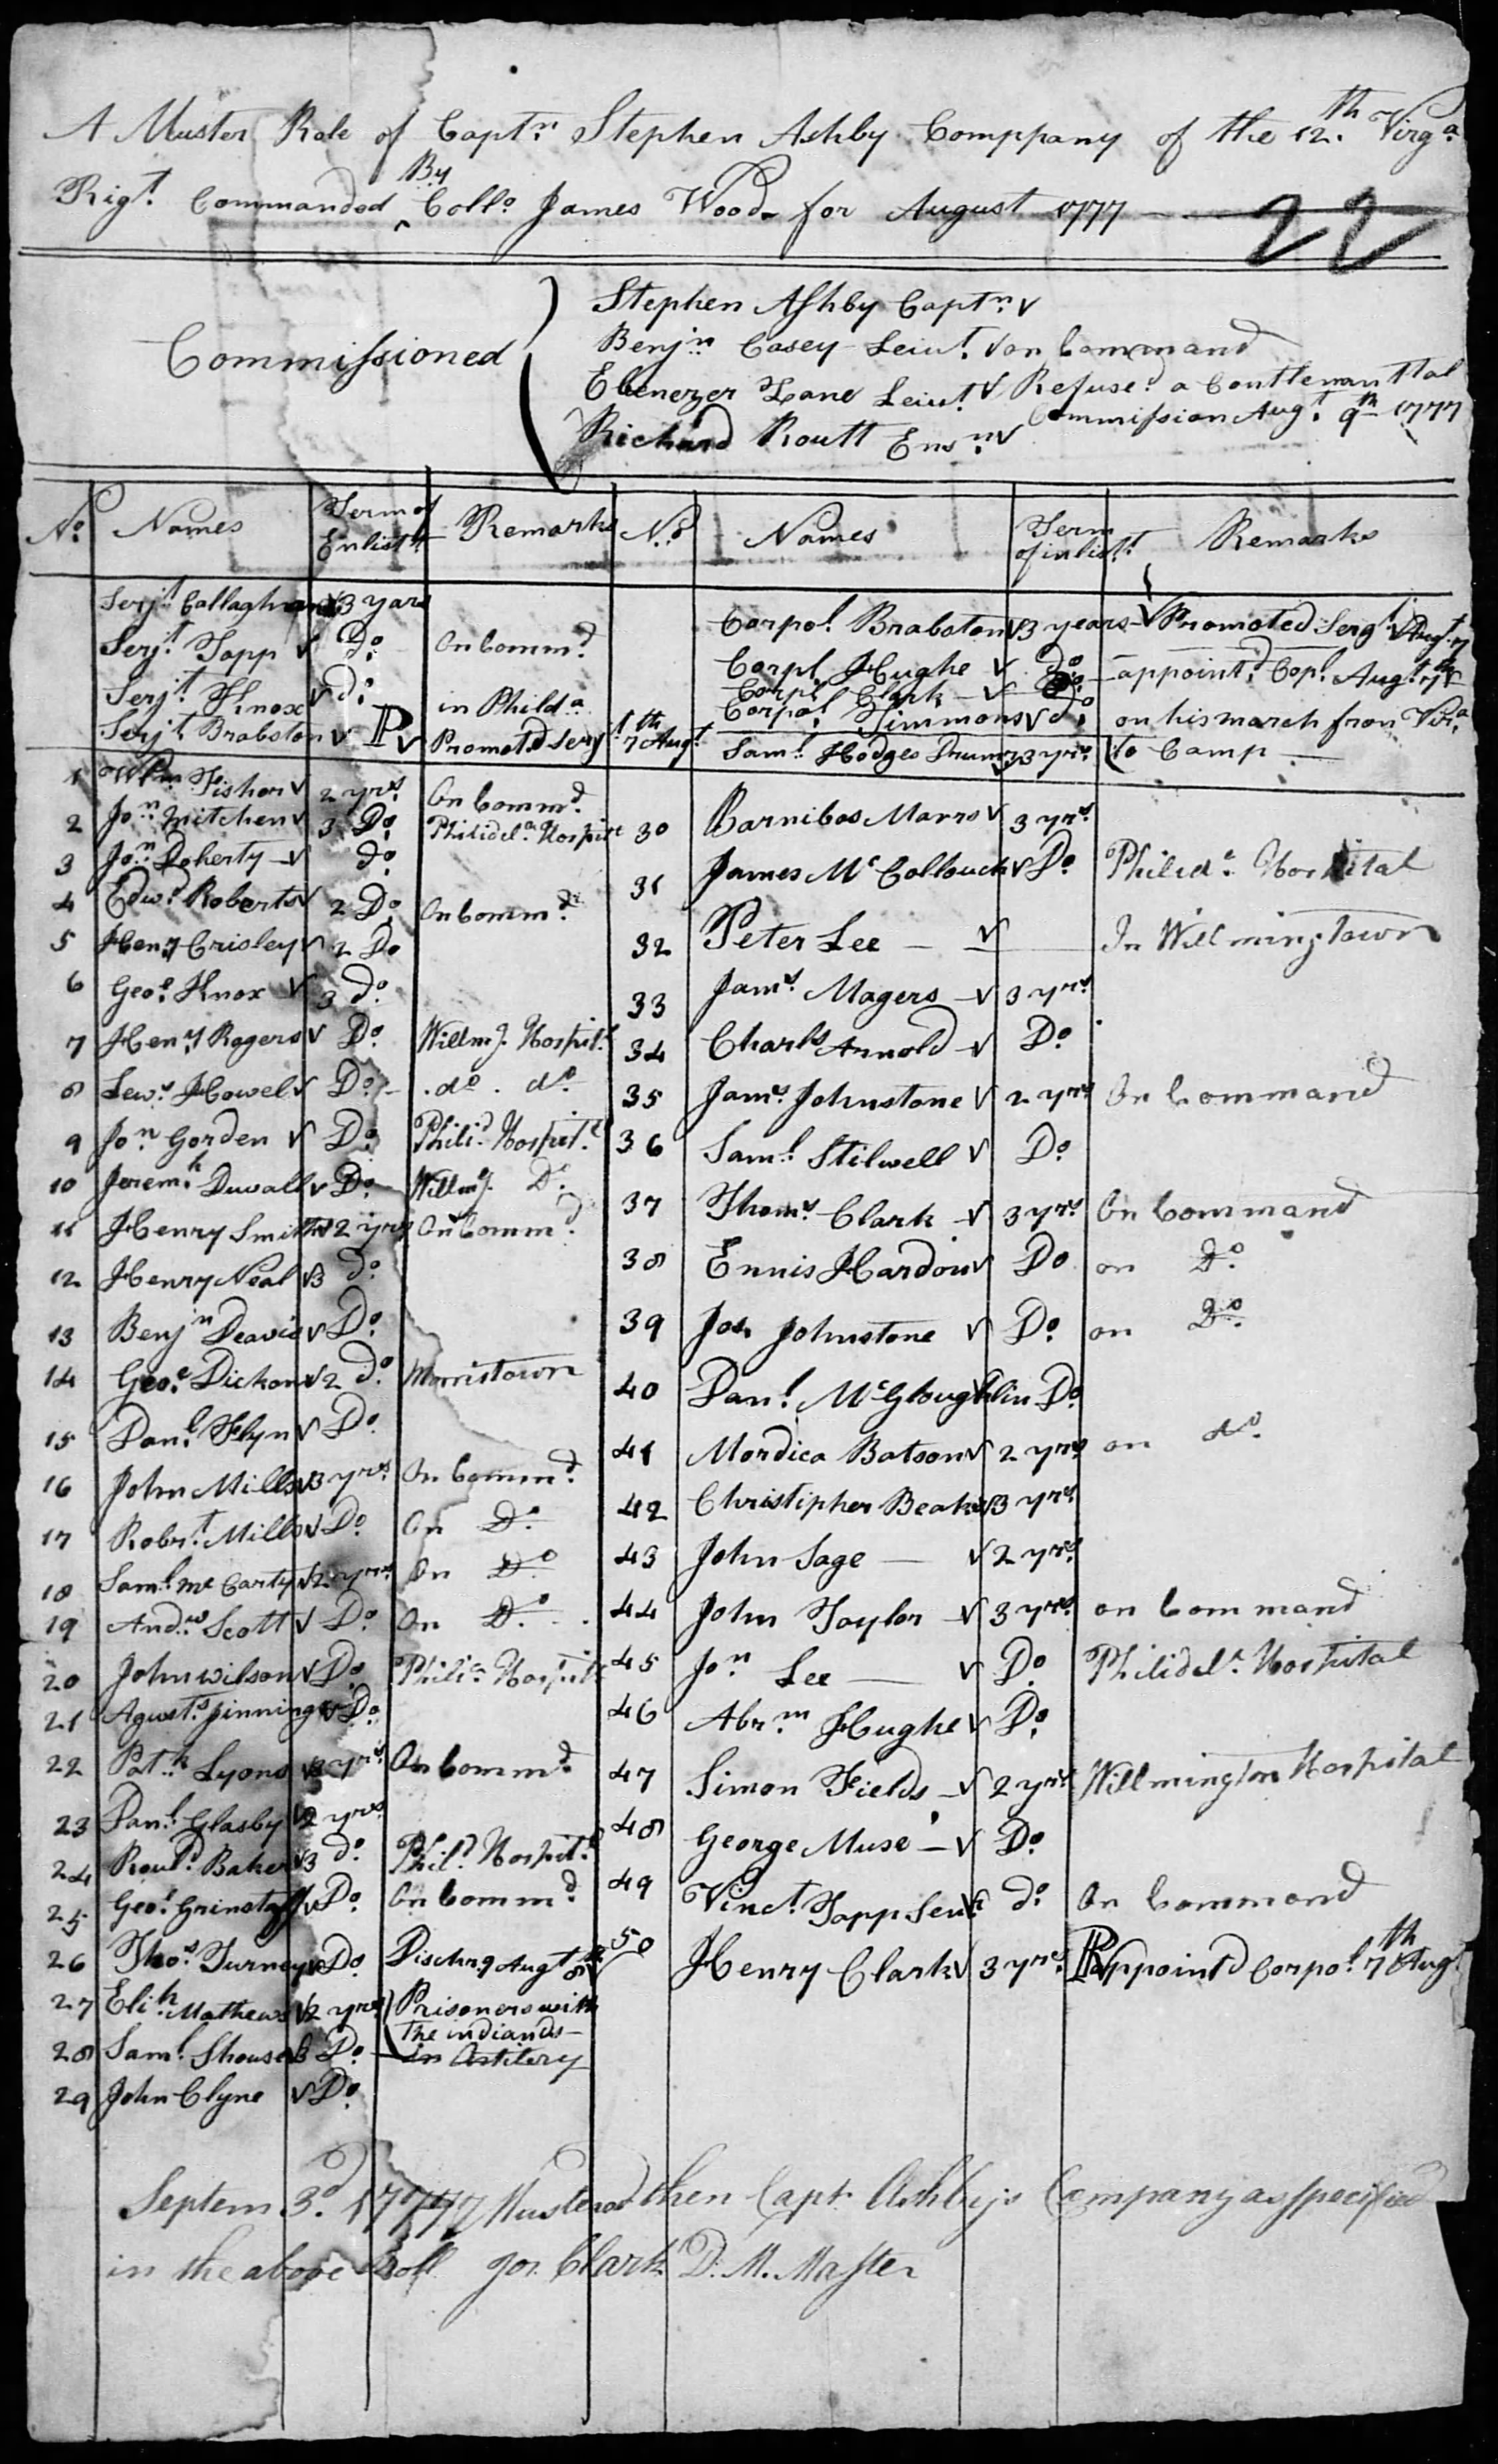 A Muster Role of Captn. Stephen Ashby Comppany of the 12th. Virga.
Rigt. Commanded ^By Collo. James Wood for August 1777
22
Commissioned
Stephen Ashby Captn. v
Benjn. Casey Leiut. v on Command
Ebenezer Zane Leiut. v Refused a Conttenanttal
Commission Augt. 9th 1777
Richard Routt Ensn. v
No. Names Term of Enlistt. Remarks
Serjt. Callaghan v 3 years
Serjt. Tapp v Do. On Commd.
Serjt. Knox v do. in Philda.
Serjt. Brabston v P v Promotd Serjt. 7th Augt.
1 Wm. Fisher v 2 yrs. On Commd.
2 Jon. Mitchen v 3 Do. Philidela. Hospitl
3 Jon. Doherty v do.
4 Edwd. Roberts v 2 Do. On Commd.
5 Heny Crisley v 2 Do
6 Geoe. Knox v 3 do.
7 Heny Rogers v Do. Willmg. Hospitl.
8 Lews. Howel v Do. do. do.
9 Jon Gorden v Do. Philid. Hospitl.
10 Jeremh. Duvall v Do. Willmg. Do.
11 Henry Smith v 2 yrs On Commd.
12 Henry Neal v 3 do.
13 Benjn Deavis v Do.
14 Geoe. Dickon v 2 do. Morristown
15 Danl. Flyn v Do.
16 John Mills v 3 yrs. On Commd.
17 Robrt. Mills v Do. On Do.
18 Saml. Mc Carty v 2 yrs. On Do.
19 Andw. Scott v Do. On Do.
20 John Wilson v Do. Phila. Hospitl
21 Agusts. Jinnings v Do.
22 Patk. Lyons v 3 yrs. On Commd.
23 Danl. Glasby v 2 yrs.
24 Baker v 3 do. Phild. Hospitl.
25 Geoe. Grinstaff v Do. On Commd.
26 Thos. Turney v Do. Dischrg Augt 8th
27 Elih. Mathews v 2 yrs Prisoners with
the indiands
28 Saml. Shouse v 3 Do. in Artilery
29 John Clyne v Do.
No. Names Term of inlistt. Remarks
Corpol. Brabston v 3 years v Promoted Sergt. v Augt. 7
Corpl. Hughe v do.
Corpl. Clark v Do. appointd. Copl. Augt. 7th
Corpol. Simmons v do. on his march from Vira.
Saml. Hodges Drumr v 3 yrs. to Camp
30 Barnibas Marrs v 3 yrs.
31 James Mc Collouch v Do. Philida. Hospital
32 Peter Lee v In Willmingtown
33 Jams. Magers v 3 yrs.
34 Charls Arnold v Do.
35 Jams. Johnstone v 2 yrs On Command
36 Saml. Stilwell v Do.
37 Thoms. Clark v 3 yrs. On Command
38 Ennis Hardou v Do on Do.
39 Jos. Johnstone v Do. on Do.
40 Danl. McGloughlin Do
41 Mordica Batson v 2 yrs on do.
42 Christipher Beaks v 3 yrs.
43 John Sage v 2 yrs.
44 John Taylor v 3 yrs. on Command
45 Jon Lee v Do. Philidela. Hospital
46 Abrm. Hughe v Do.
47 Simon Fields v 2 yrs Willmington Hospital
48 George Muse v Do.
49 Vinct. Tapp Senr. v do. On Command
50 Henry Clark v 3 yrs. P v appointd Corpol. 7th Augt.
Septem 3d. 1777 Mustered then Capt. Ashby's Company as specified
in the above Roll Jon. Clark D. M. Master